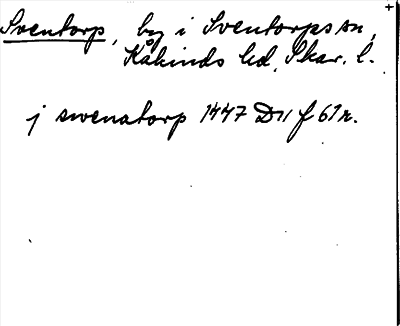 Sventorp, by i Sventorps sn,
Kåkinds hd, Skar. l.
j swenatorp 1447 D11 f 61r.